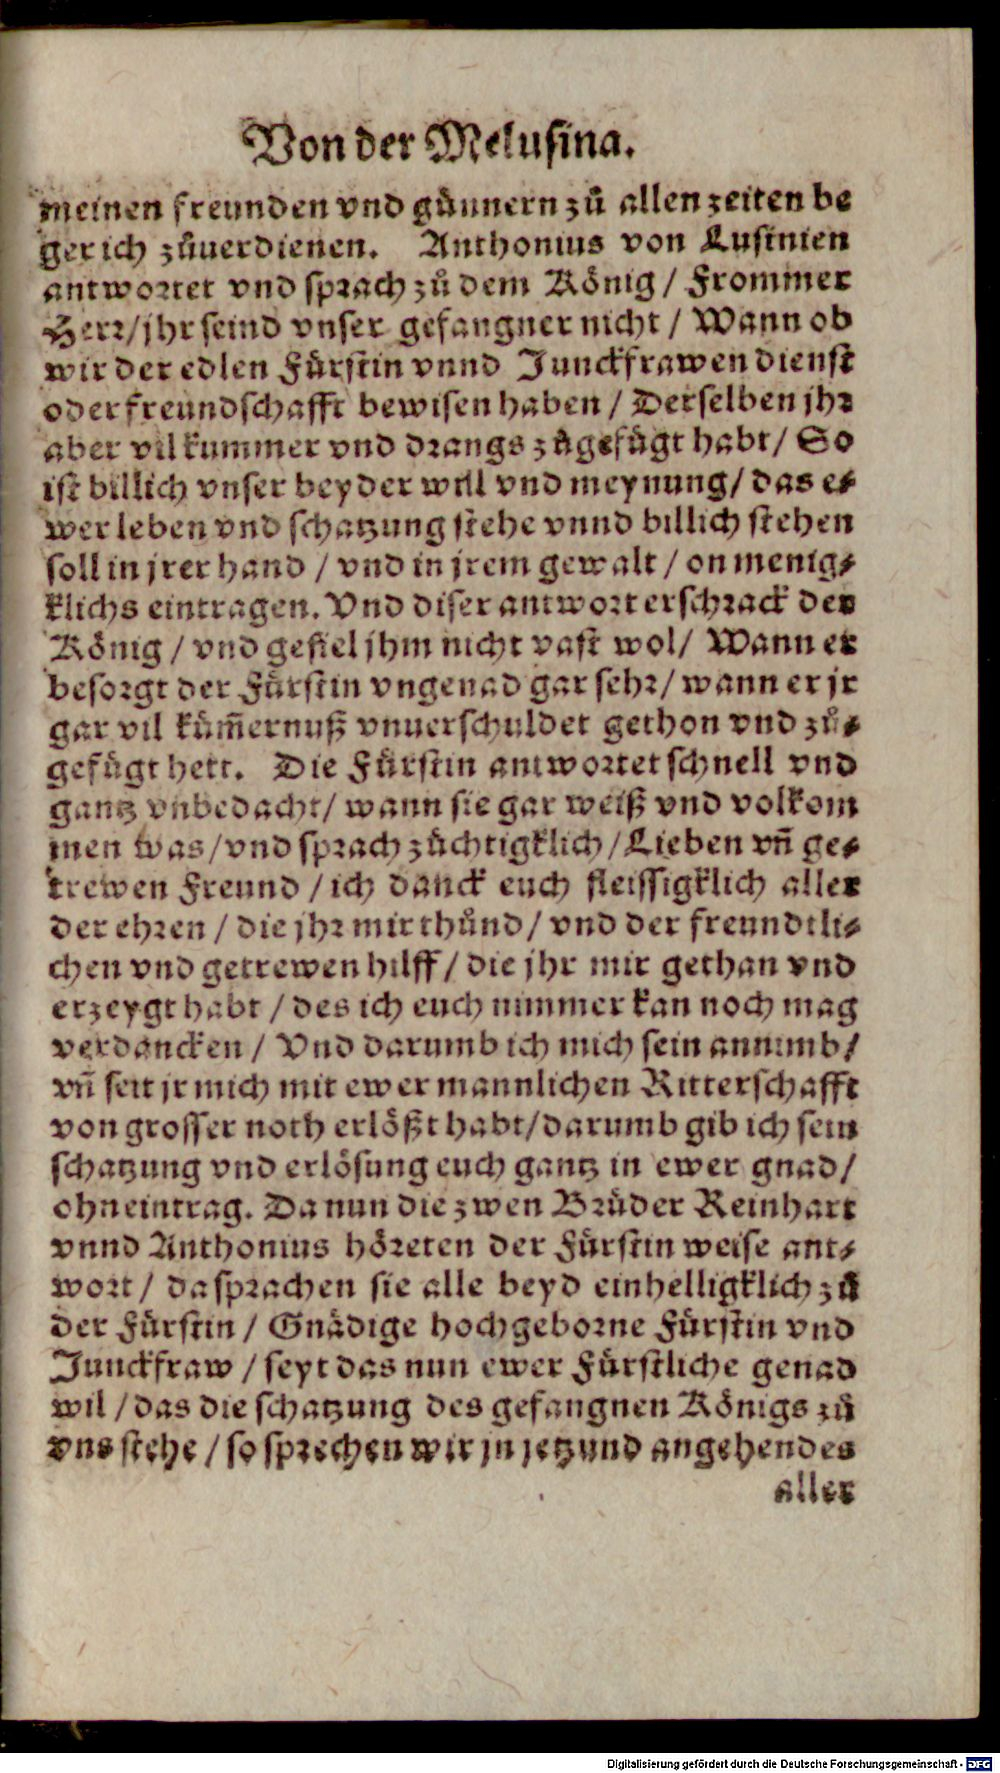 Von der Melusina.
meinen freunden vnd gün̈nern zů allen zeiten be
ger ich zůuerdienen. Anthonius von Lusinien
antwortet vnd sprach zů dem König / Frommer
Herr/jhr seind vnser gefangner nicht / Wann ob
wir der edlen Fürstin vnnd Junckfrawen dienst
oder freundschafft bewisen haben / Derselben jhr
aber vil kummer vnd drangs zůgefügt habt/ So
ist billich vnser beyder will vnd meynung/ das e⸗
wer leben vnd schatzung stehe vnnd billich stehen
soll in jrer hand / vnd in jrem gewalt / on menig⸗
klichs eintragen. Vnd diser antwort erschrack der
König / vnd gefiel jhm nicht vast wol/ Wann er
besorgt der Fürstin vngenad gar sehr/ wann er jr
gar vil küm̄ernuß vnuerschuldet gethon vnd zů⸗
gefügt hett. Die Fürstin antwortet schnell vnd
gantz vnbedacht/ wann sie gar weiß vnd volkom
men was/vnd sprach züchtigklich/Lieben vn̄ ge⸗
trewen Freund / ich danck euch fleissigklich aller
der ehren / die jhr mir thůnd/ vnd der freundtli⸗
chen vnd getrewen hilff/ die jhr mir gethan vnd
erzeygt habt / des ich euch nimmer kan noch mag
verdancken / Vnd darumb ich mich sein annimb/
vn̄ seit jr mich mit ewer mannlichen Ritterschafft
von grosser noth erlößt habt/darumb gib ich sein
schatzung vnd erlösung euch gantz in ewer gnad/
ohn eintrag. Da nun die zwen Brüder Reinhart
vnnd Anthonius höreten der Fürstin weise ant⸗
wort/ da sprachen sie alle beyd einhelligklich zů
der Fürstin / Gnädige hochgeborne Fürstin vnd
Junckfraw / seyt das nun ewer Fürstliche genad
wil / das die schatzung des gefangnen Königs zů
vns stehe / so sprechen wir jn jetzund angehendes
aller
Digitalisierung gefördert durch die Deutsche Forschungsgemeinschaft - DFG